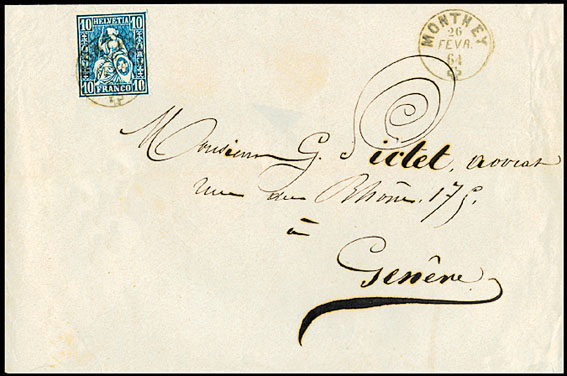 10 HELVETIA 10
10 FRANCO 10
MONTHEY
26
FEVR.
64
Monsieur G. Pictet, avocat
rue du Rhône. 175.
à
Genève